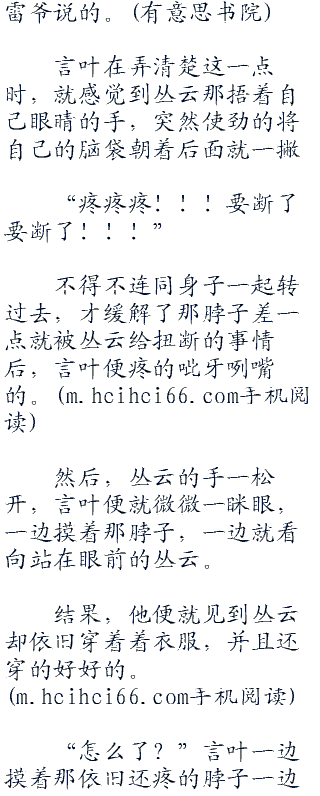 雷爷说的。(有意思书院)
言叶在弄清楚这一点
时，就感觉到丛云那捂着自
己眼睛的手，突然使劲的将
自己的脑袋朝着后面就一撇
“疼疼疼！！！要断了
要断了！！！”
不得不连同身子一起转
过去，才缓解了那脖子差一
点就被丛云给扭断的事情
后，言叶便疼的呲牙咧嘴
的。(m.hcihci66.com手机阅
读)
然后，丛云的手一松
开，言叶便就微微一眯眼，
一边摸着那脖子，一边就看
向站在眼前的丛云。
结果，他便就见到丛云
却依旧穿着着衣服，并且还
穿的好好的。
(m.hcihci66.com手机阅读)
“怎么了？”言叶一边
摸着那依旧还疼的脖子一边